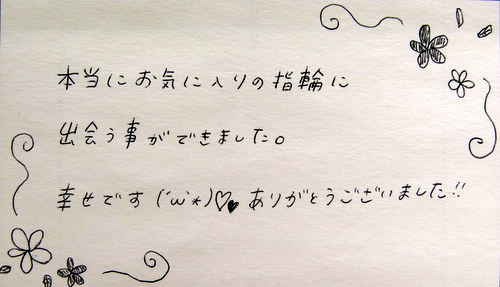 本当にお気に入りの指輪に
出会う事ができました。
幸せです(´ω`*)♡♥ありがとうございました!!